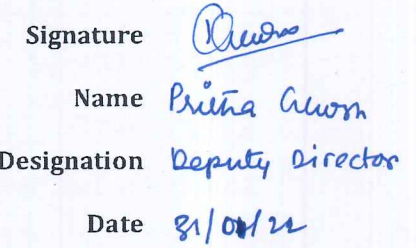 Signature
Name Pritha Ghosh
Designation Deputy Director
Date